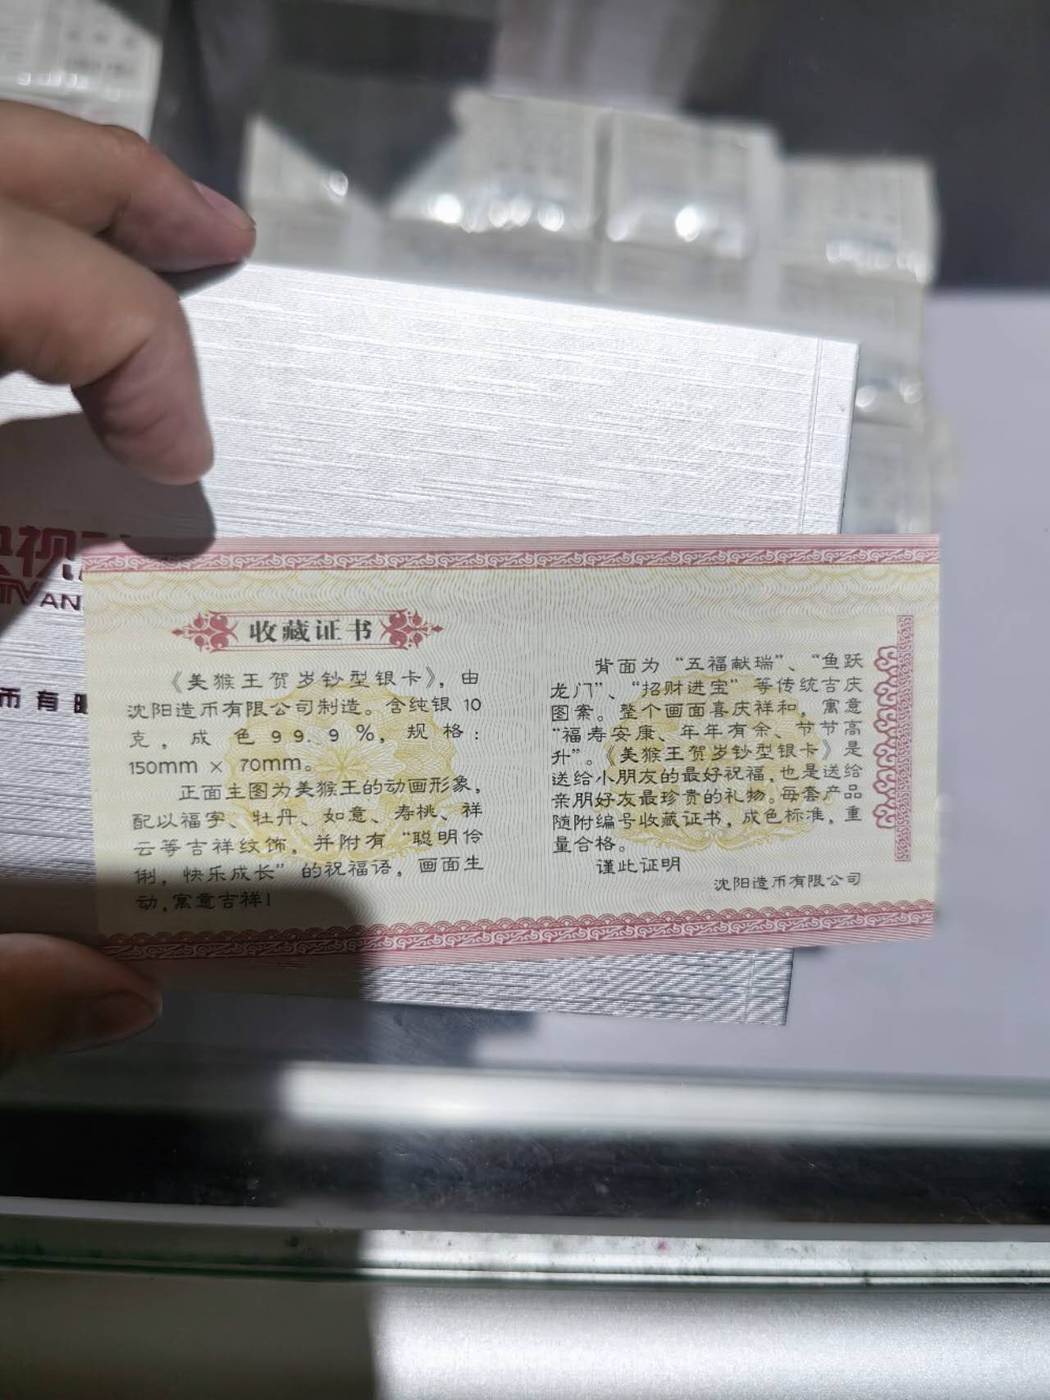 央视
TVAN
币有
收藏证书
《美猴王贺岁钞型银卡》，由
沈阳造币有限公司制造。含纯银 10
克，成色99.9%，规格：
150mm × 70mm。
正面主图为美猴王的动画形象，
配以福字、牡丹、如意、寿桃、祥
云等吉祥纹饰，并附有“聪明伶
俐，快乐成长”的祝福语，画面生
动，寓意吉祥！
背面为“五福献瑞”、“鱼跃
龙门”、“招财进宝”等传统吉庆
图案。整个画面喜庆祥和，寓意
“福寿安康、年年有余、节节高
升”。《美猴王贺岁钞型银卡》是
送给小朋友的最好祝福，也是送给
亲朋好友最珍贵的礼物。每套产品
随附编号收藏证书，成色标准，重
量合格。
谨此证明
沈阳造币有限公司